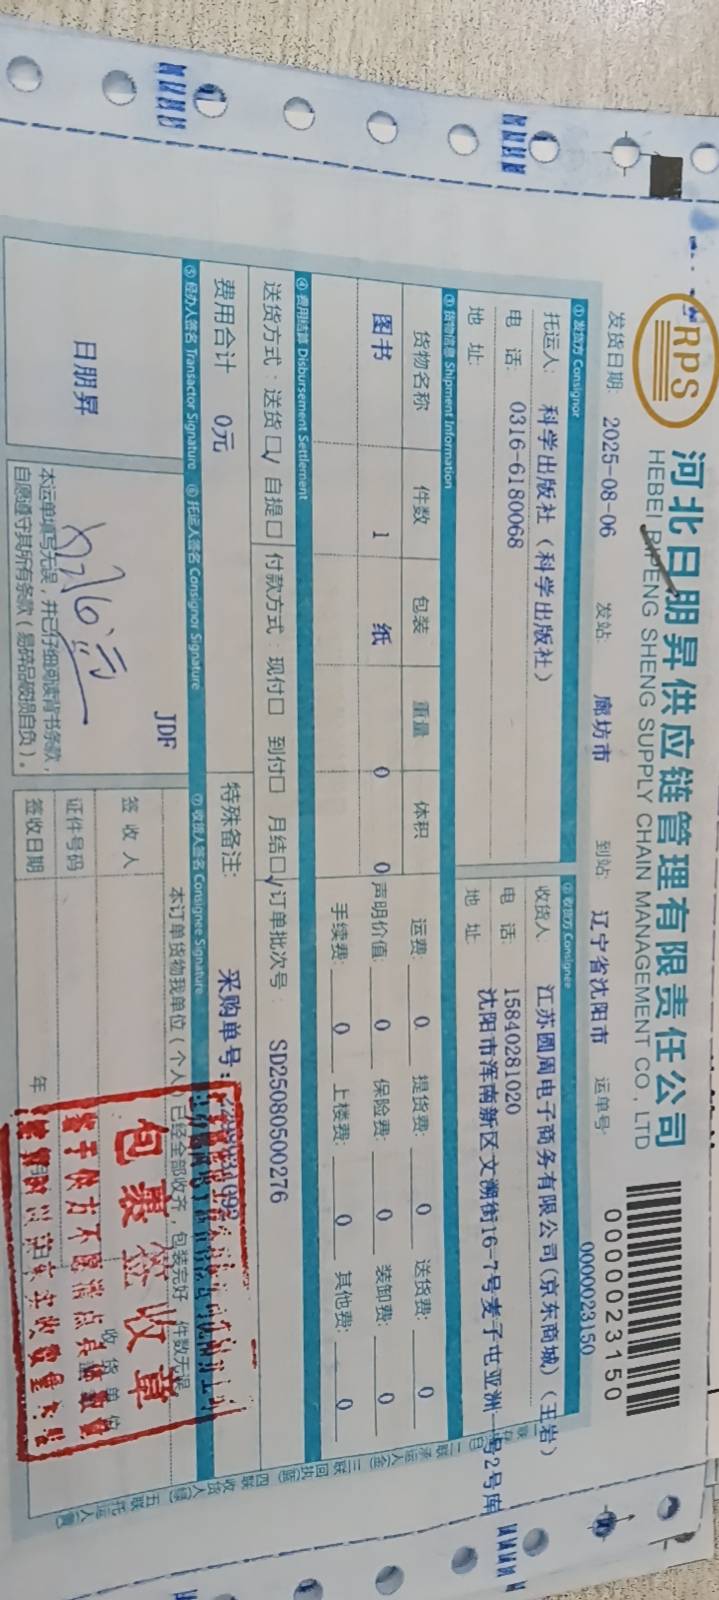 RPS
河北日朋昇供应链管理有限责任公司
HEBEI RIPENG SHENG SUPPLY CHAIN MANAGEMENT CO., LTD
0000023150
发货日期: 2025-08-06 发站: 廊坊市 到站: 辽宁省沈阳市 运单号: 0000023150
① 发货方 Consignor
托运人: 科学出版社（科学出版社）
电 话: 0316-6180068
地 址:
② 收货方 Consignee
收货人: 江苏圆周电子商务有限公司(京东商城)（王岩）
电 话: 15840281020
地 址: 沈阳市浑南新区文溯街16-7号麦子屯亚洲一号2号库
③ 货物信息 Shipment Information
货物名称 件数 包装 重量 体积
图书 1 纸 0 0
运费: 0 提货费: 0 送货费: 0
声明价值: 0 保险费: 0 装卸费: 0
手续费: 0 上楼费: 0 其他费: 0
④ 费用结算 Disbursement Settlement
送货方式: 送货 □√ 自提 □ 付款方式: 现付□ 到付□ 月结□√ 订单批次号: SD25080500276
费用合计 0元 特殊备注: 采购单号:
⑤ 经办人签名 Transactor Signature ⑥ 托运人签名 Consignor Signature ⑦ 收货人签名 Consignee Signature
日朋昇
JDF
本运单填写无误，并已仔细阅读背书条款，
自愿遵守其所有条款（易碎品破损自负）。
本订单货物我单位（个人）已经全部收齐，包装完好 件数无误
签 收 人 收 货 单 位
证件号码
签收日期 年
包裹签收章